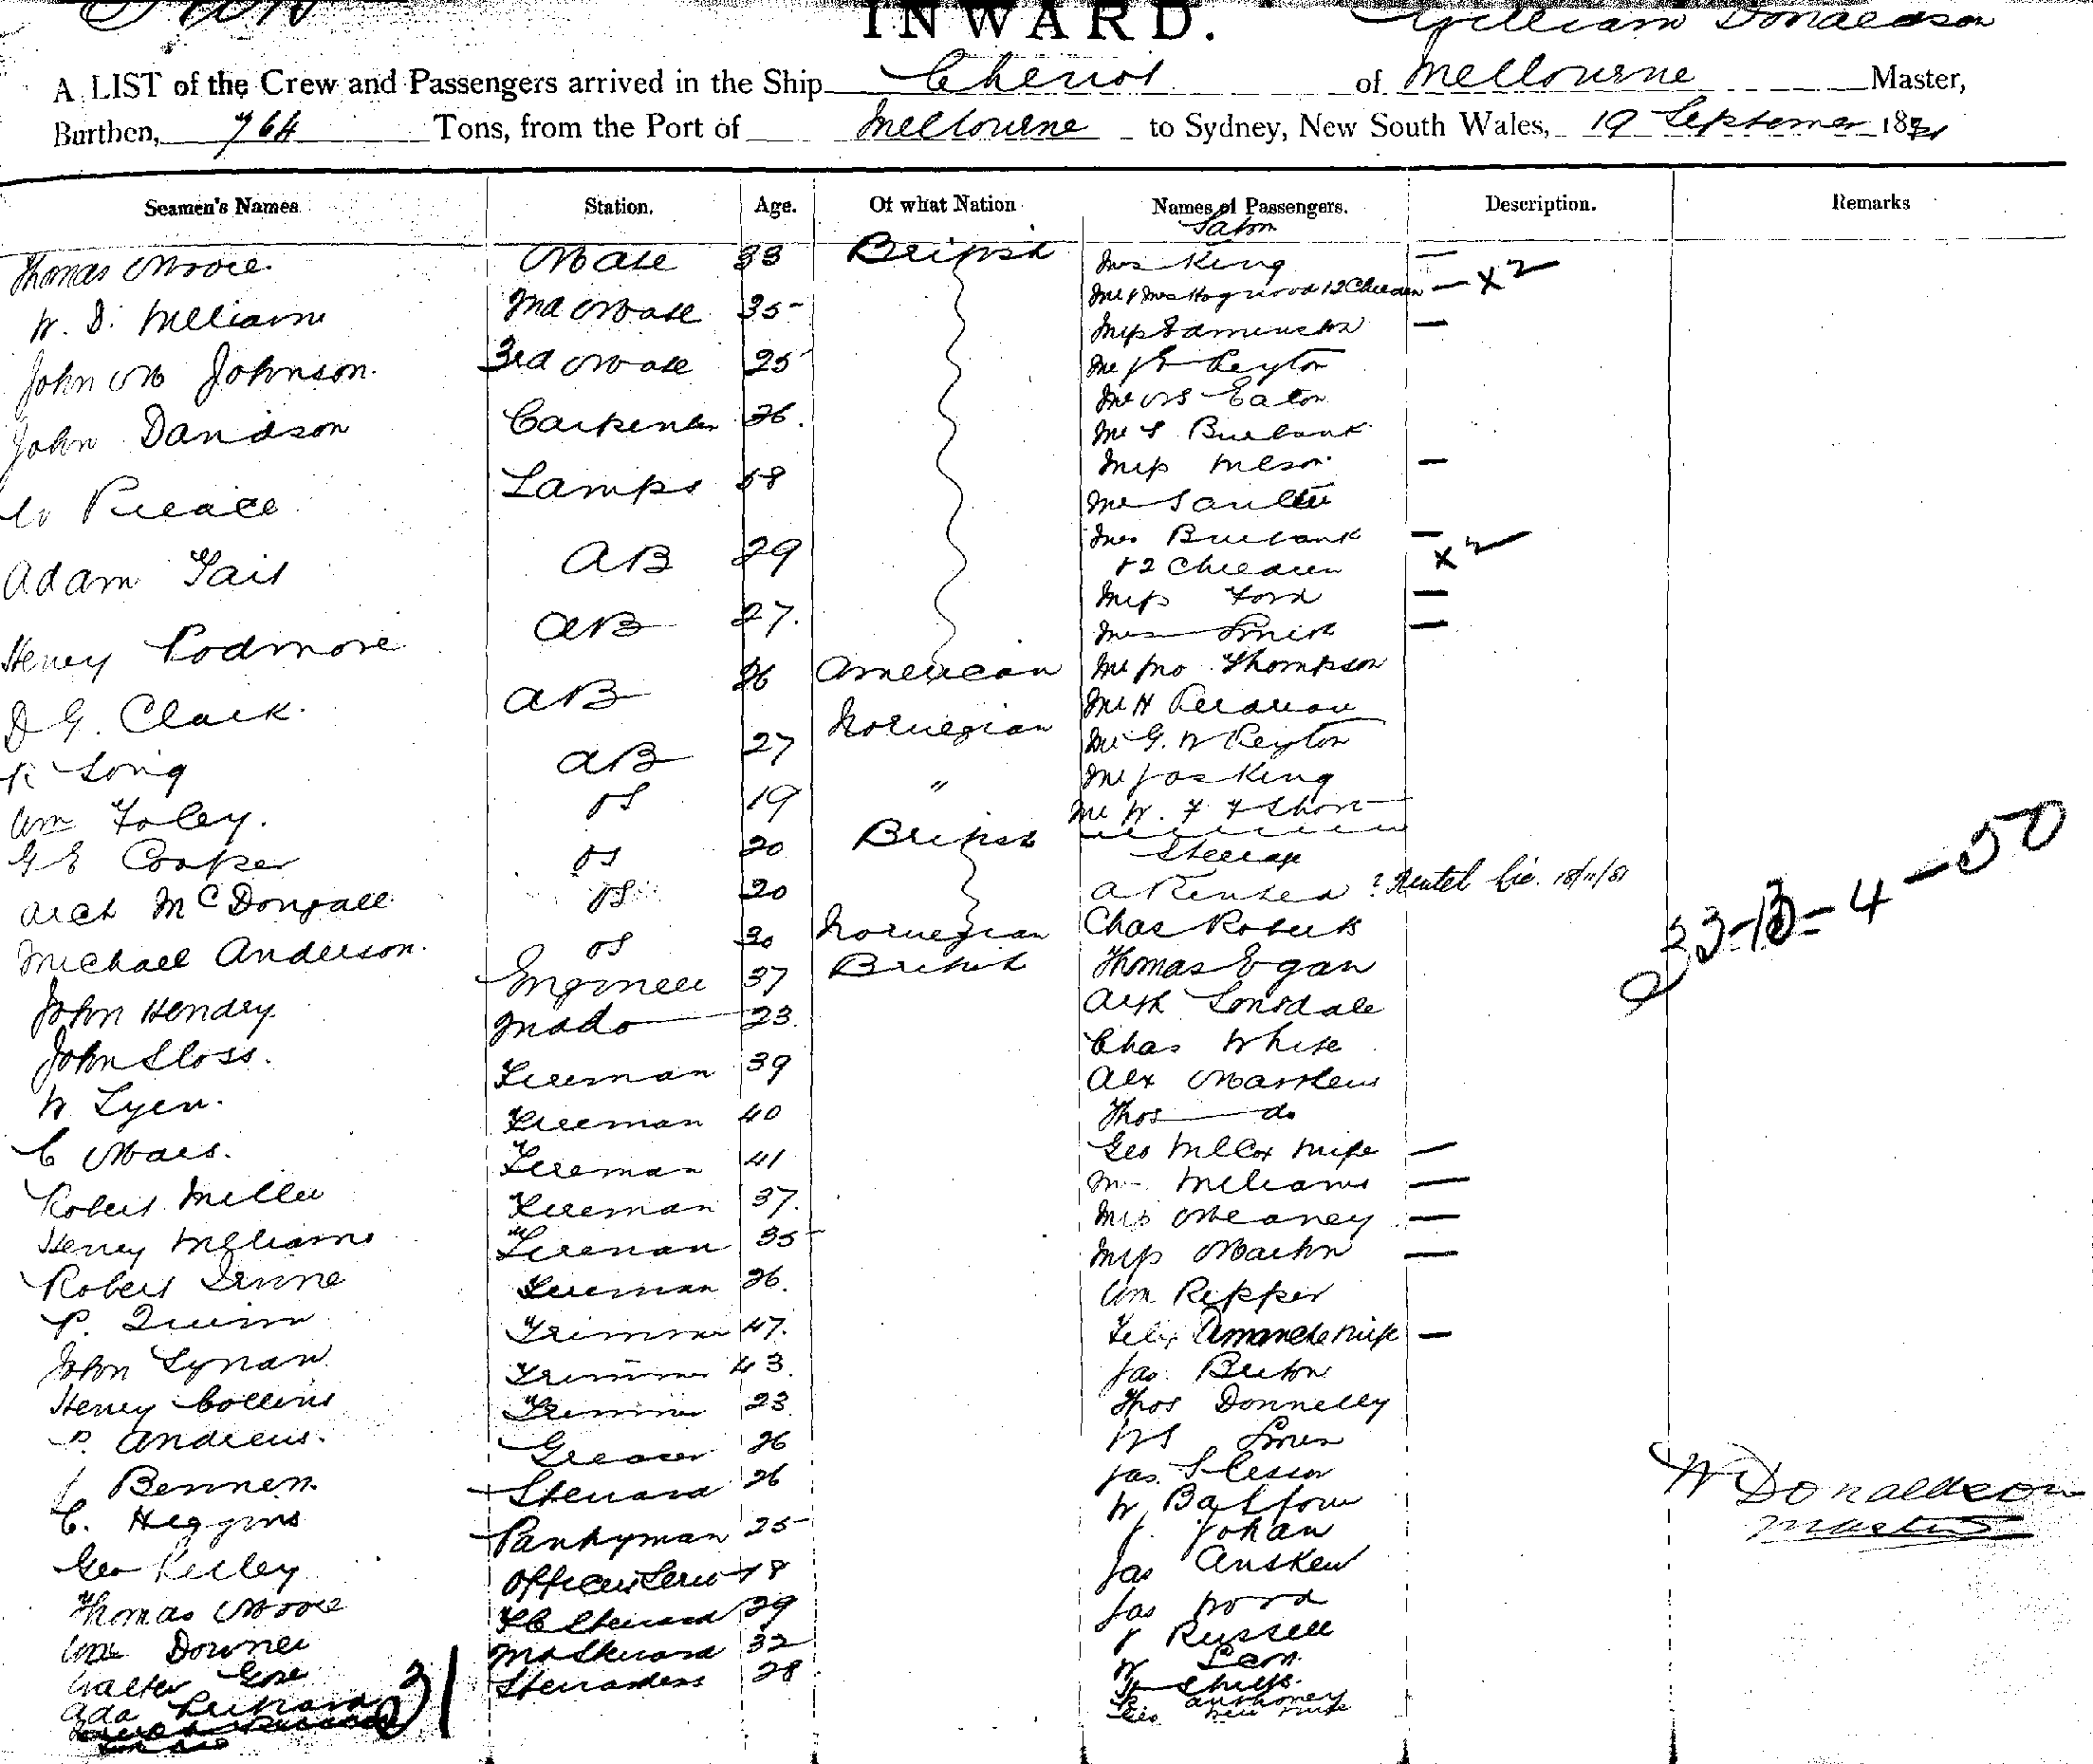 INWARD. William Donaldson
A LIST of the Crew and Passengers arrived in the Ship Cheviot of Melbourne Master,
Burthen, 764 Tons, from the Port of Melbourne to Sydney, New South Wales, 19 September 18
Seamen's Names Station. Age. Of what Nation Names of Passengers. Description. Remarks
Saloon
Thomas Moore Mate 33 British Mrs King —
W. D. Williams 2nd Mate 35 Mr & Mrs Hogwood & 2 Children — x 2
Miss Edminston —
John M Johnson. 3rd Mate 25 Mr J E Peyton
Mr Eaton
John Davidson Carpenter 26. Mr S Burbank
Miss Wilson —
Pierace Lamps 58 Mr Saulter
Mrs Burbank —
& 2 Children x 2
Adam Tait AB 29 Miss Ford —
Mrs Smith —
Henry Podmore AB 27. Mr Jno Thompson
D G. Clark. AB 26 American Mr H
Norwegian Mr G. W Peyton
R Long AB 27 Mr Jas King
Wm Foley. OS 19 " Mr W. F. F Short
G E Cooper OS 20 British Steerage
Arch McDougall OS 20 A Rentel ? Rentel
Michael Anderson. OS 30 Norwegian Chas Roberts
John Hendry Engineer 37 British Thomas Egan
John Sloss. 2nd do 23. Arth Lonsdale
W Lyen. Fireman 39 Chas White
C Mars. Fireman 40 Alex Matthews
Thos do
Robert Miller Fireman 41 Geo Wilcox wife —
Henry Williams Fireman 37. Williams —
Robert Irvine Fireman 35 Miss Meaney —
P. Quinn Fireman 26. Miss Martin —
John Lynan Trimmer 47. Wm Repper
Henry Collins Trimmer 43. Felix Amande wife —
P. Andrews. Trimmer 23 Jas. Burton
J Bennett Greaser 26 Thos Donnelly
C. Higgins Steward 26 W S
Geo Kelley Pantryman 25 Jas. Slesson
Thomas Moore Officers Serv 18 W Balfour
Wm Downer F C Steward 29 J. Johan
Walter Gore 2nd Steward 32 Jas Anskew
Ada Stewardess 28 Jas Wood
J Russell
W
Anthoney
Geo wife
31
23-13-4-50
W Donaldson
Master